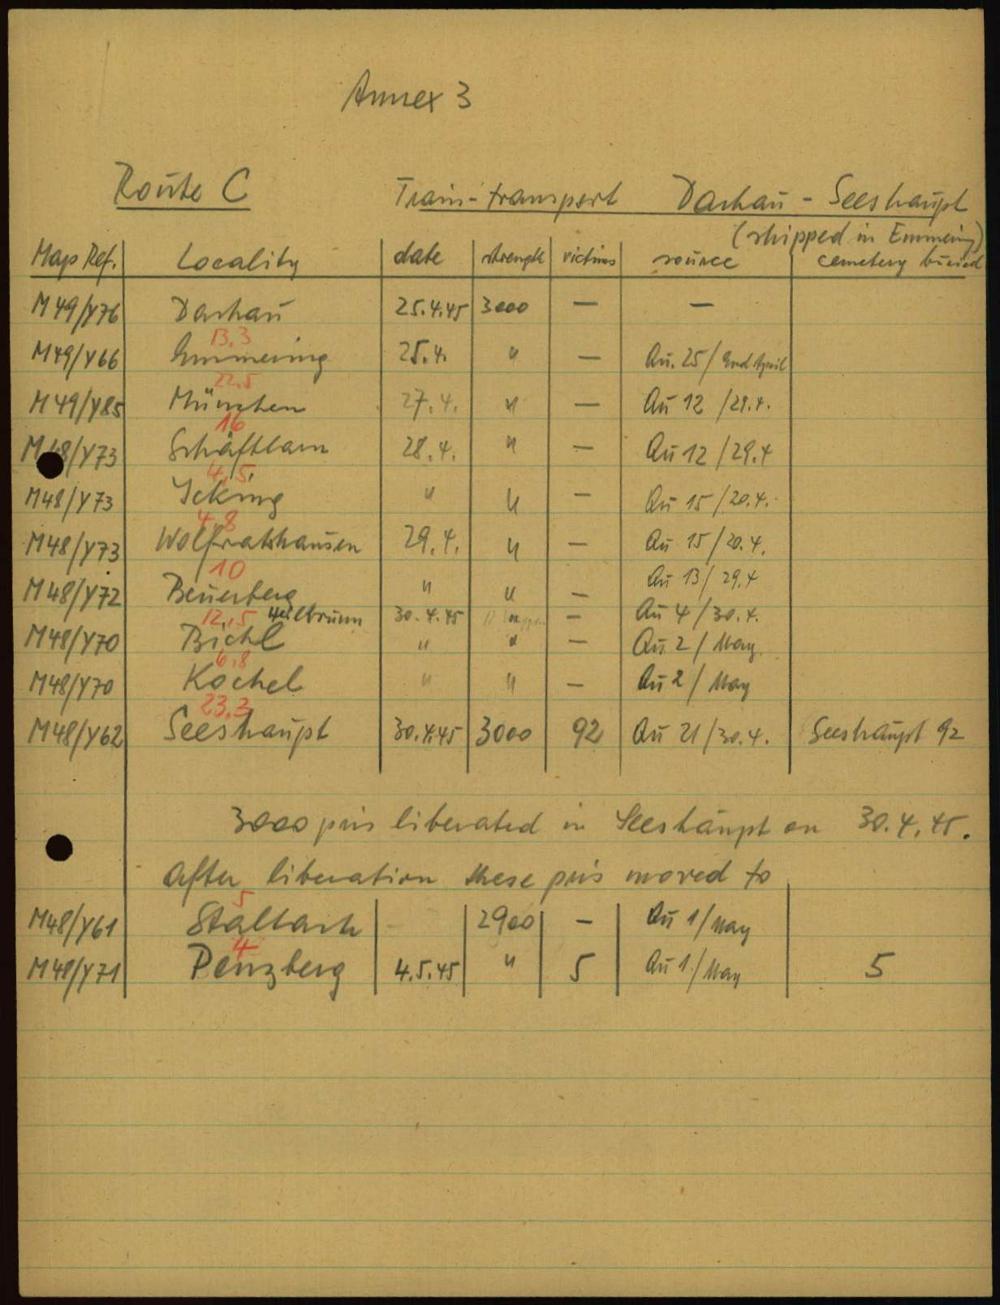 Annex 3
Route C Train-transport Dachau - Seeshaupt
(shipped in Emmering)
Map Ref. Locality date strength victims source cemetery buried
M49/Y76 Dachau 25.4.45 3000 — —
13,3
M49/Y66 Emmering 25.4. " — Qu. 25/ End April
22,5
M49/Y85 München 27.4. " — Qu 12 /29.4.
16
M48/Y73 Schäftlarn 28.4. " — Qu 12 /29.4
4,5
M48/Y73 Icking " " — Qu 15 /20.4.
4,8
M48/Y73 Wolfratshausen 29.4. " — Qu 15/20.4.
10
M48/Y72 Beuerberg " " — Qu 13/ 29.4
12,5 Heilbrunn 30.4.45 " — Qu 4 /30.4.
M48/Y70 Bichl " " — Qu 2 / May
6,8
M48/Y70 Kochel " " — Qu 2 / May
23,3
M48/Y62 Seeshaupt 30.4.45 3000 92 Qu 21/30.4. Seeshaupt 92
3000 pris liberated in Seeshaupt on 30.4.45.
after liberation these pris moved to
5
M48/Y61 Staltach - 2900 — Qu 1/May
4
M48/Y71 Penzberg 4.5.45 " 5 Qu 1/May 5